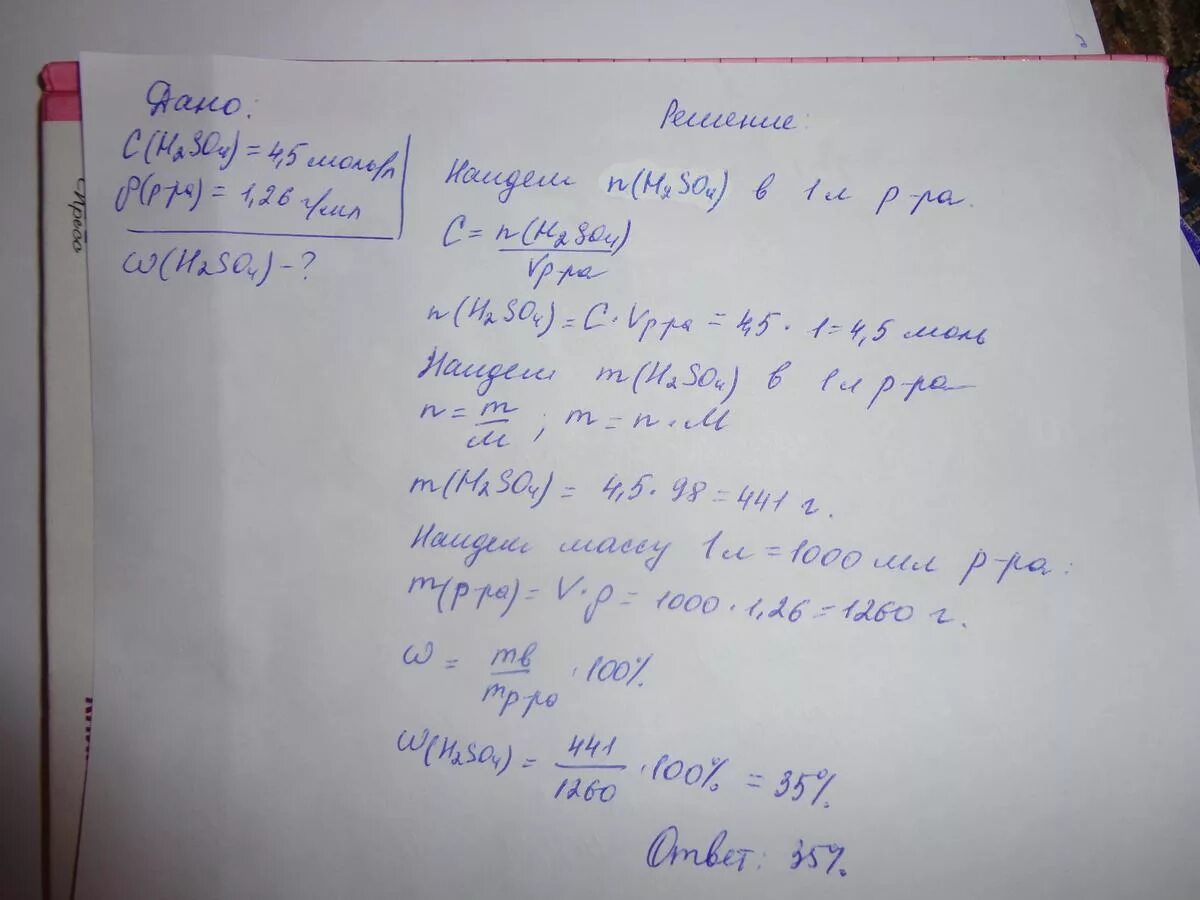 Дано:
C(H₂SO₄) = 4,5 моль/л
ρ(р-ра) = 1,26 г/мл
ω(H₂SO₄) - ?
Решение:
Найдем n(H₂SO₄) в 1 л р-ра.
C = n(H₂SO₄) / Vр-ра
n(H₂SO₄) = C · Vр-ра = 4,5 · 1 = 4,5 моль
Найдем m(H₂SO₄) в 1 л р-ра
n = m / M ; m = n · M
m(H₂SO₄) = 4,5 · 98 = 441 г.
Найдем массу 1 л = 1000 мл р-ра:
m(р-ра) = V · ρ = 1000 · 1,26 = 1260 г.
ω = mв / mр-ра · 100%.
ω(H₂SO₄) = 441 / 1260 · 100% = 35%.
Ответ: 35%.